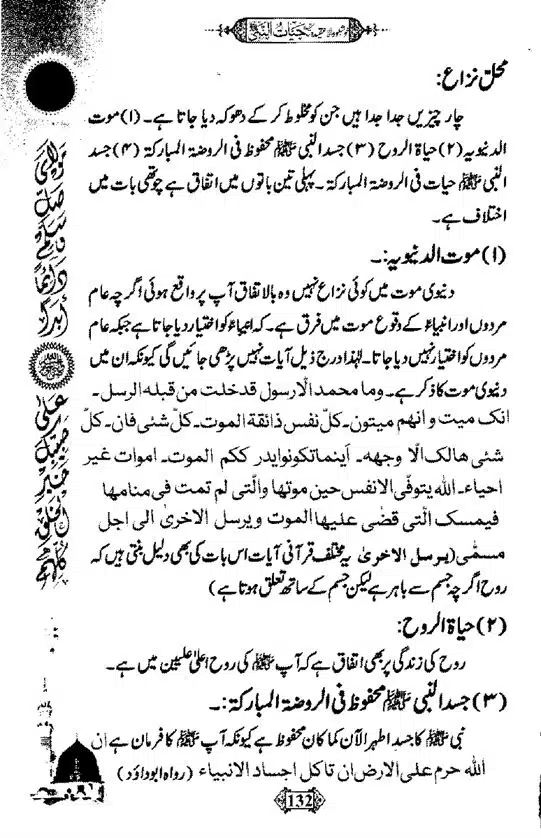 حیات النبی ﷺ
محل نزاع:
چار چیزیں جدا جدا ہیں جن کو مخلوط کر کے دھوکہ دیا جاتا ہے۔ (۱) موت
الدنیویہ (۲) حیاۃ الروح (۳) جسد النبی ﷺ محفوظ فی الروضۃ المبارکۃ (۴) جسد
النبی ﷺ حیات فی الروضۃ المبارکۃ۔ پہلی تین باتوں میں اتفاق ہے چوتھی بات میں
اختلاف ہے۔
(۱) موت الدنیویہ:۔
دنیوی موت میں کوئی نزاع نہیں وہ بالاتفاق آپ پر واقع ہوئی اگرچہ عام
مردوں اور انبیاءؑ کے وقوع موت میں فرق ہے۔ کہ انبیاءؑ کو اختیار دیا جاتا ہے جبکہ عام
مردوں کو اختیار نہیں دیا جاتا۔ لہٰذا درج ذیل آیات نہیں پڑھی جائیں گی کیونکہ ان میں
دنیوی موت کا ذکر ہے۔ وما محمد الا رسول قد خلت من قبله الرسل۔
انک میت و انهم میتون۔ کل نفس ذائقة الموت۔ کل شئی فان۔ کل
شئی هالک الا وجهه۔ اینما تکونوا یدر ککم الموت۔ اموات غیر
احیاء۔ الله یتوفی الانفس حین موتها والتی لم تمت فی منامها
فیمسک التی قضی علیها الموت و یرسل الاخری الی اجل
مسمی (یرسل الاخری یہ مختلف قرآنی آیات اس بات کی بھی دلیل بنتی ہیں کہ
روح اگرچہ جسم سے باہر ہے لیکن جسم کے ساتھ تعلق ہوتا ہے)
(۲) حیاۃ الروح:
روح کی زندگی پر بھی اتفاق ہے کہ آپ ﷺ کی روح اعلیٰ علیین میں ہے۔
(۳) جسد النبی ﷺ محفوظ فی الروضۃ المبارکۃ:۔
نبی ﷺ کا جسد اطہر الآن کما کان محفوظ ہے کیونکہ آپ ﷺ کا فرمان ہے ان
الله حرم علی الارض ان تاکل اجساد الانبیاء (رواہ ابوداؤد)
132
مولای صل وسلم دائما ابدا
علی حبیبک خیر الخلق کلهم